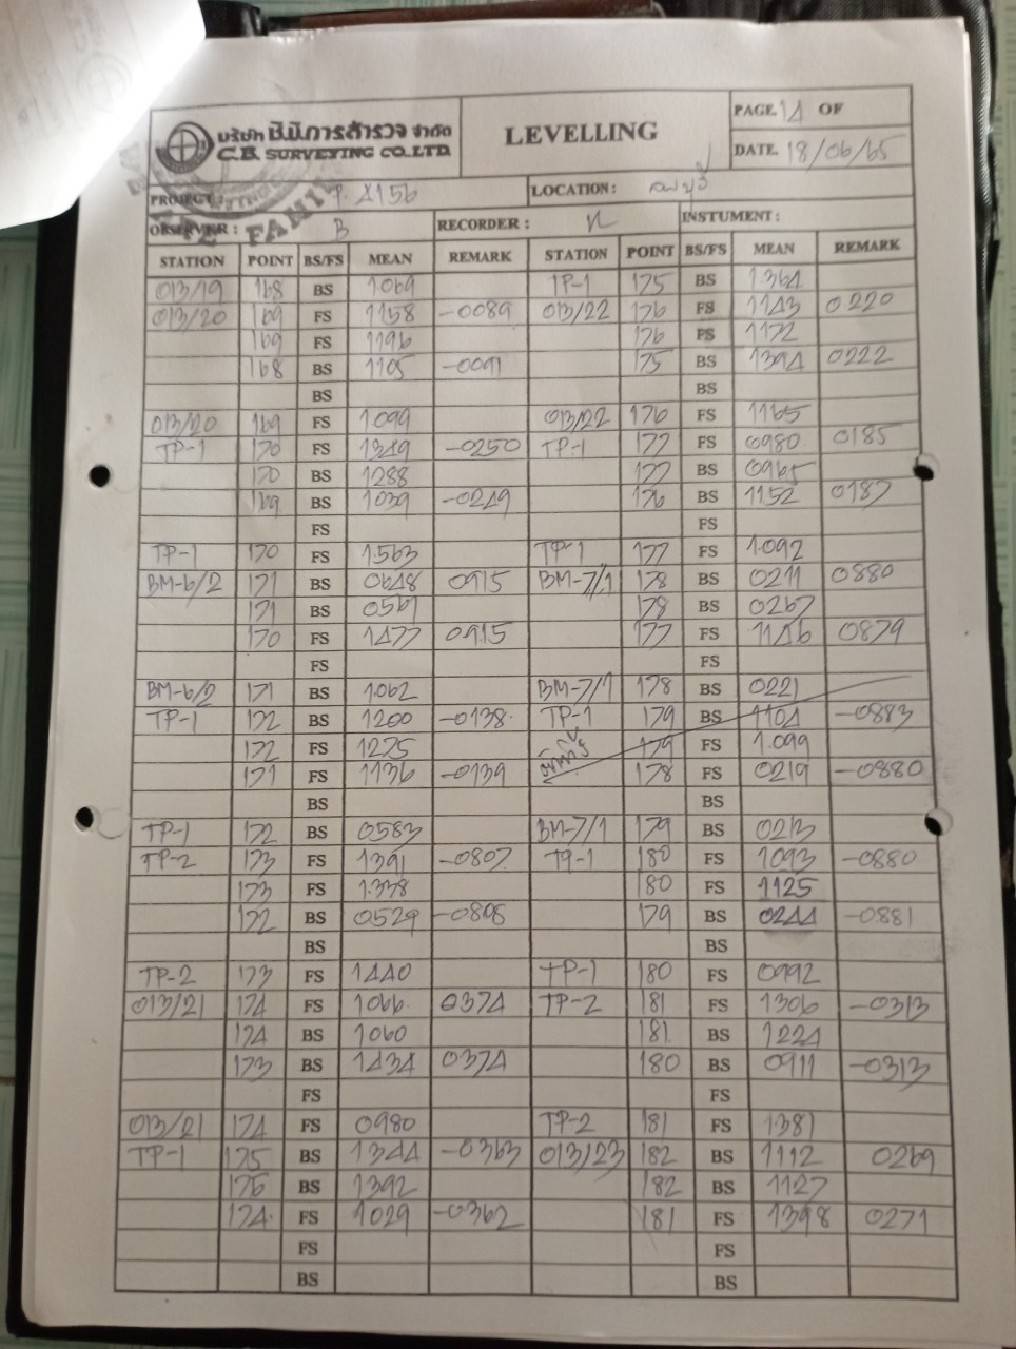 บริษัท ซี.บี.การสำรวจ จำกัด
C.B. SURVEYING CO.,LTD.
LEVELLING
PAGE. 14 OF
DATE. 18/06/65
PROJECT : P. 4156
LOCATION : ลพบุรี
OBSERVER : B
RECORDER : N
INSTUMENT :
STATION POINT BS/FS MEAN REMARK STATION POINT BS/FS MEAN REMARK
013/19 168 BS 1069 TP-1 175 BS 1364
013/20 169 FS 1158 -0089 013/22 176 FS 1143 0220
169 FS 1196 176 FS 1172
168 BS 1105 -0091 175 BS 1394 0222
BS BS
013/20 169 FS 1099 013/22 176 FS 1165
TP-1 170 FS 1349 -0250 TP-1 177 FS 0980 0185
170 BS 1288 177 BS 0965
169 BS 1039 -0249 176 BS 1152 0187
FS FS
TP-1 170 FS 1.563 TP-1 177 FS 1.092
BM-6/2 171 BS 0648 0915 BM-7/1 178 BS 0211 0880
171 BS 0561 178 BS 0267
170 FS 1477 0915 177 FS 1146 0879
FS FS
BM-6/2 171 BS 1.062 BM-7/1 178 BS 0221
TP-1 172 BS 1200 -0138 TP-1 179 BS 1104 -0883
172 FS 1275 179 FS 1.099
171 FS 1136 -0139 178 FS 0219 -0880
BS BS
TP-1 172 BS 0583 BM-7/1 179 BS 0213
TP-2 173 FS 1391 -0807 TP-1 180 FS 1093 -0880
173 FS 1.338 180 FS 1125
172 BS 0529 -0808 179 BS 0244 -0881
BS BS
TP-2 173 FS 1440 TP-1 180 FS 0992
013/21 174 FS 1066 0374 TP-2 181 FS 1306 -0313
174 BS 1060 181 BS 1224
173 BS 1434 0374 180 BS 0911 -0313
FS FS
013/21 174 FS 0980 TP-2 181 FS 1381
TP-1 175 BS 1344 -0363 013/23 182 BS 1112 0269
175 BS 1392 182 BS 1127
174 FS 1029 -0362 181 FS 1398 0271
FS FS
BS BS